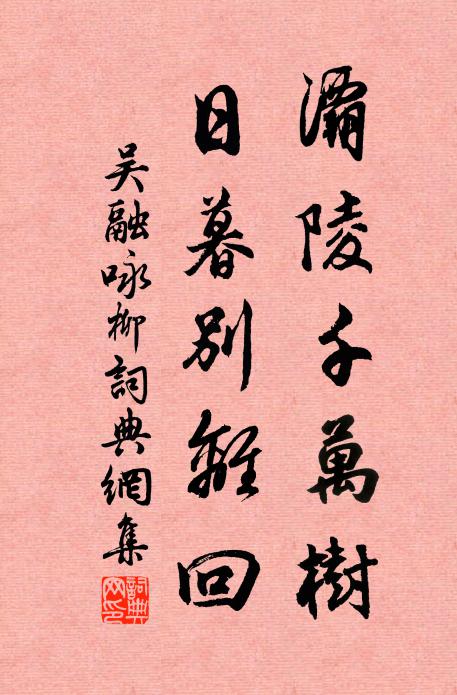 灞陵千萬樹
日暮別離回
吳融咏柳詞典網集
詞典網印